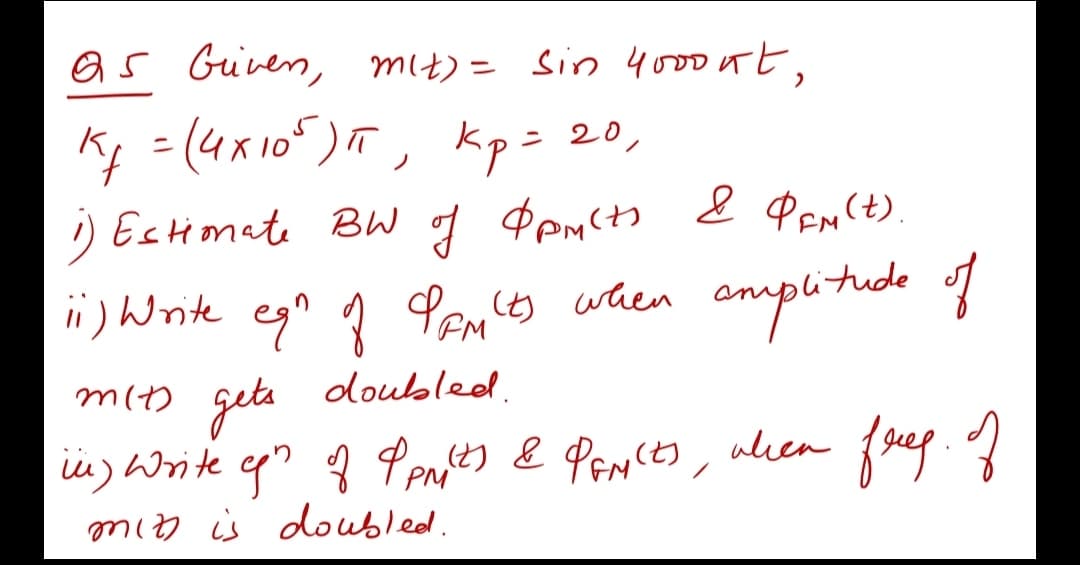 Q5 Given, m(t) = sin 4000πt,
Kf = (4×10⁵)π, Kp = 20,
i) Estimate BW of ΦPM(t) & ΦFM(t).
ii) Write eqⁿ of ΦFM(t) when amplitude of
m(t) gets doubled.
iii) Write eqⁿ of ΦPM(t) & ΦFM(t), when freq. of
m(t) is doubled.